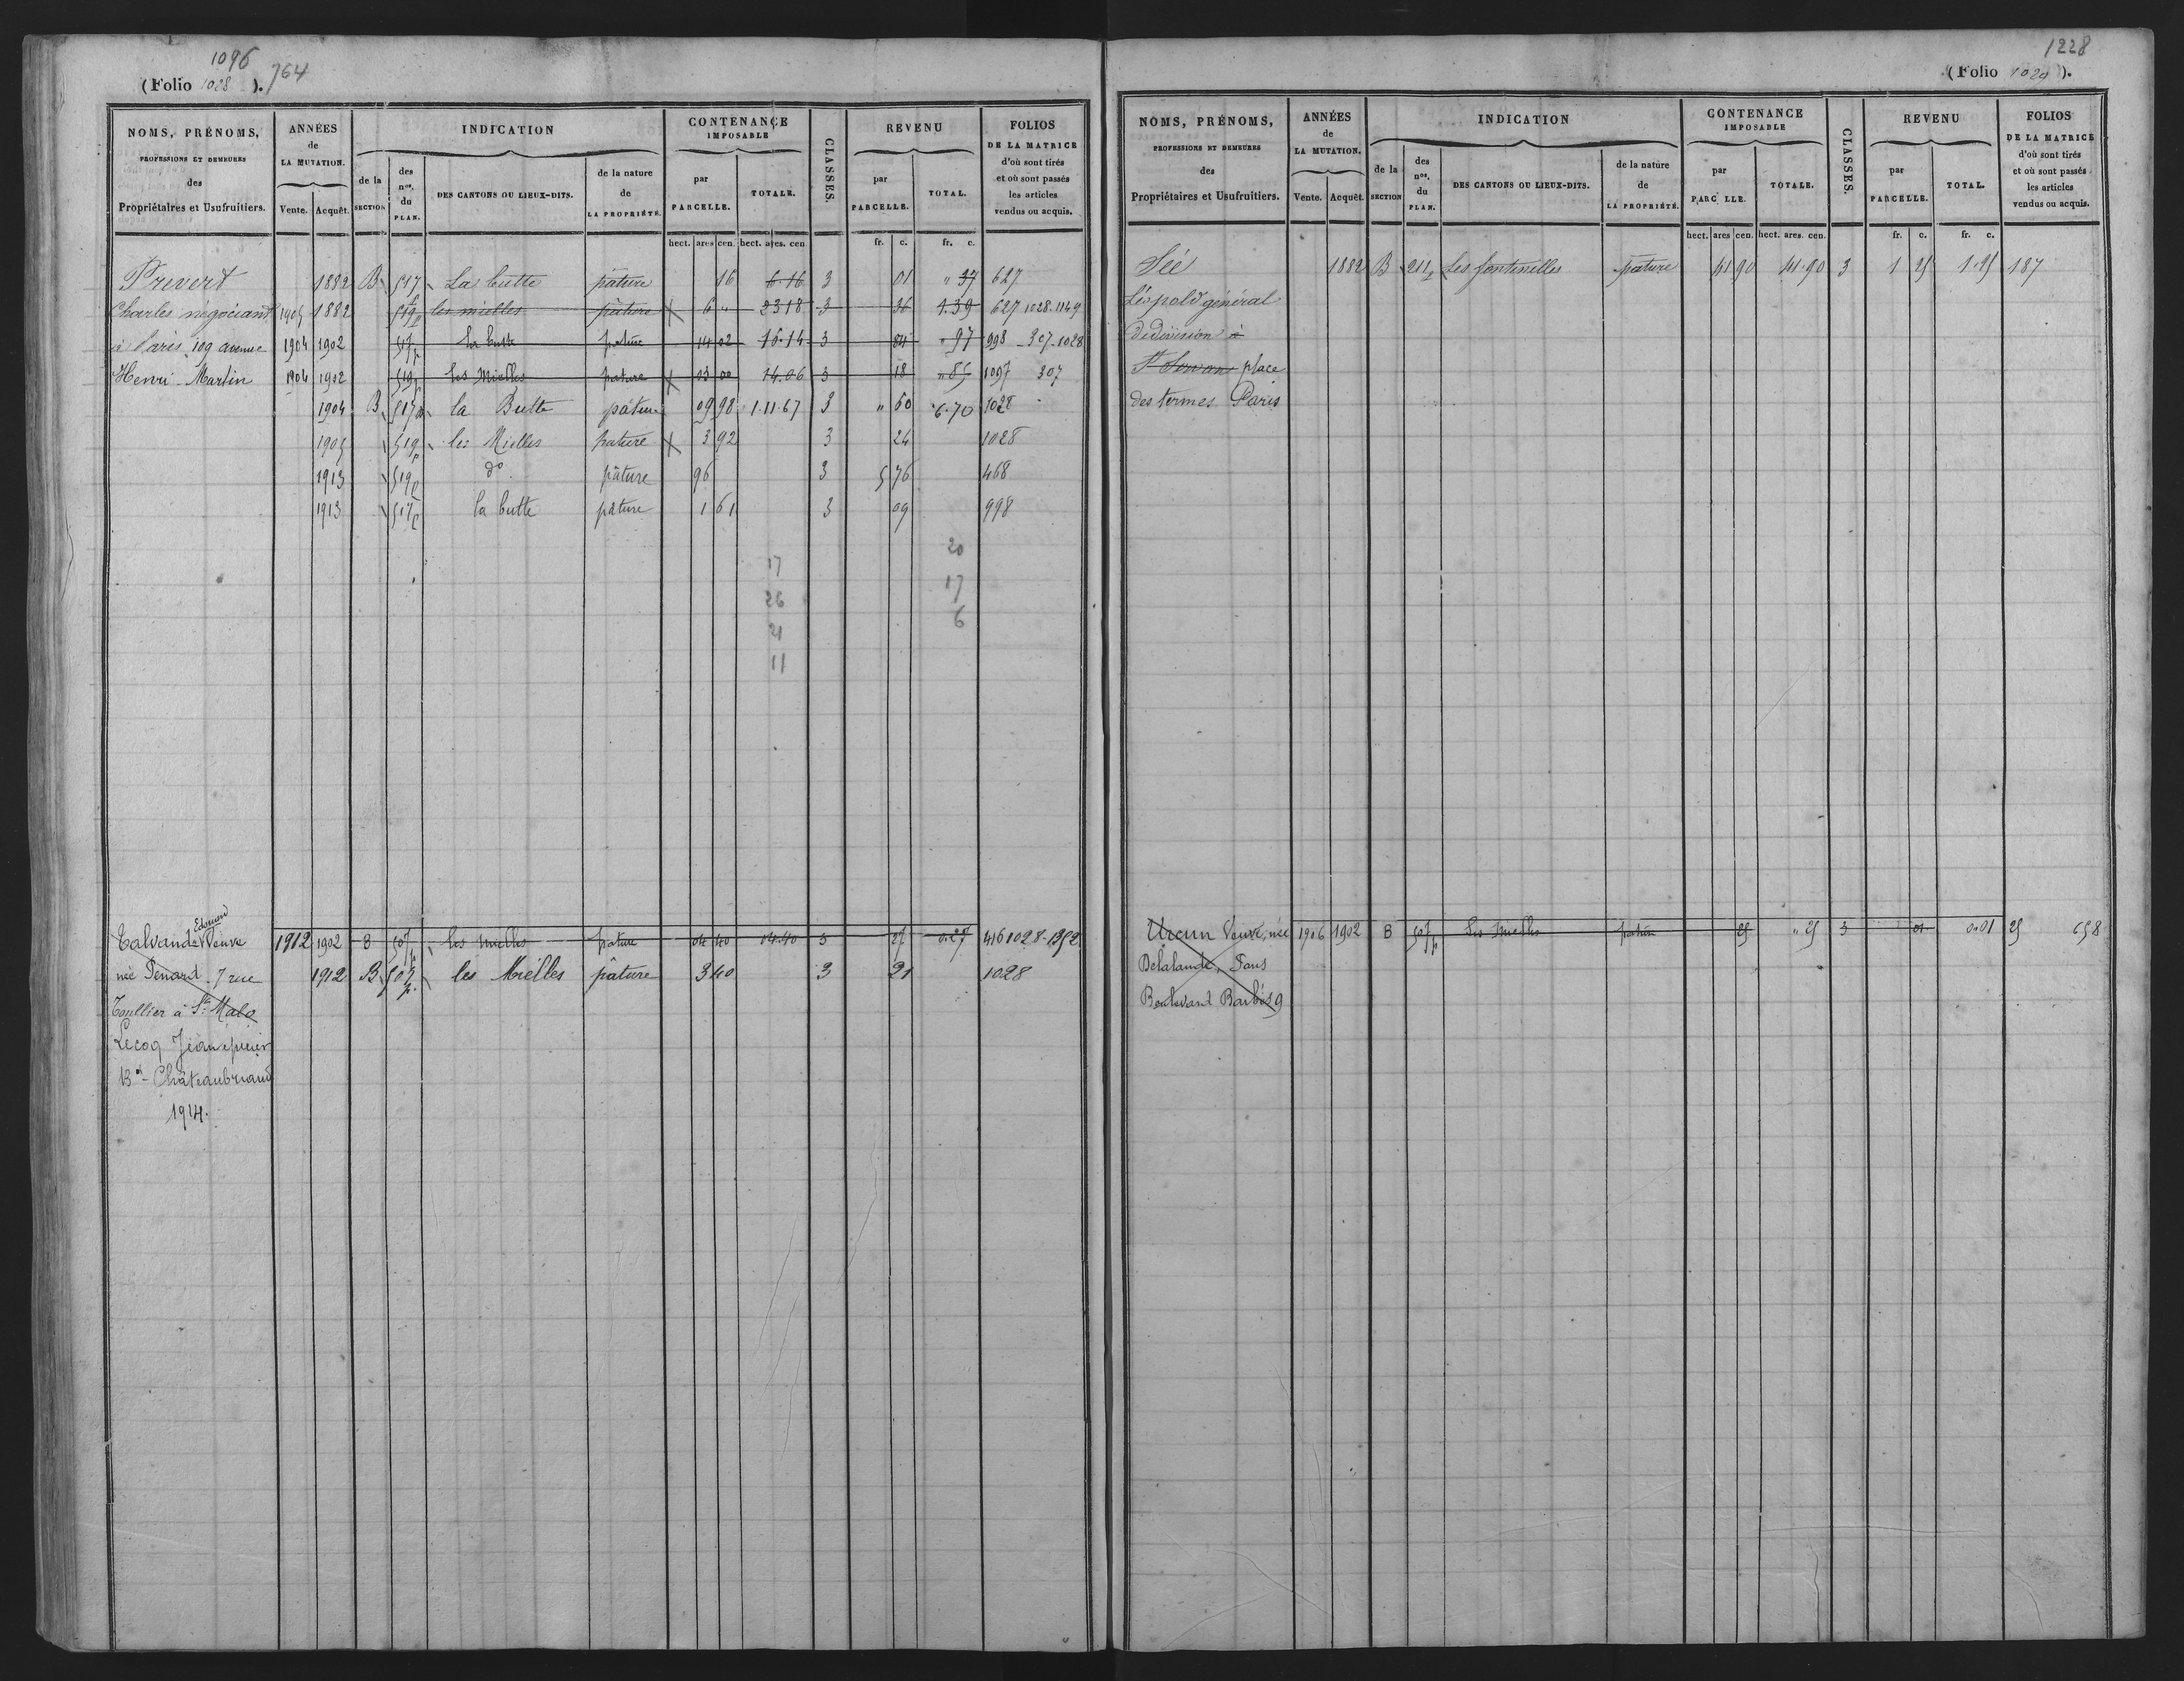 1096
(Folio 1028). 764
NOMS, PRÉNOMS, PROFESSIONS ET DEMEURES des Propriétaires et Usufruitiers.
ANNÉES de LA MUTATION. Vente. Acquêt.
INDICATION de la SECTION des nos. du PLAN. DES CANTONS OU LIEUX-DITS. de la nature de LA PROPRIÉTÉ.
CONTENANCE IMPOSABLE par PARCELLE. TOTALE.
CLASSES.
REVENU par PARCELLE. TOTAL.
FOLIOS DE LA MATRICE d'où sont tirés et où sont passés les articles vendus ou acquis.
hect. ares cen. hect. ares. cen fr. c. fr. c.
Prevert 1882 B 517 La butte pâture 16 6.16 3 01 " 37 627
Charles négociant 1905 1882 519p les mielles pâture 6 " 23 18 3 36 1.39 627 1028.1149
à Paris 109 avenue 1904 1902 517p la butte pature 14 02 16.14 3 84 " 97 998 - 307-1028
Henri Martin 1904 1902 519p les Mielles pature 03 00 14.06 3 18 " 85 1097 307
1904 B 517 la Butte pâture 09 98 1.11.67 3 " 60 6.70 1028
1905 519p les Mielles pature 3 92 3 24 1028
1913 519p do pâture 96 3 5 76 468
1913 517p la butte pâture 1 61 3 09 998
20
17
17
26
6
21
11
Edouard
Talvande Veuve 1912 1902 B 507p les mielles pature 04 40 04.40 3 27 0.27 416 1028-1352
née Penard. 7 rue 1912 B 507p. les Mielles pâture 3 40 3 21 1028
Toullier à St Malo
Lecoq Jean épicier
Bd Châteaubriand
1914.
1228
(Folio 1029).
NOMS, PRÉNOMS, PROFESSIONS ET DEMEURES des Propriétaires et Usufruitiers.
ANNÉES de LA MUTATION. Vente. Acquêt.
INDICATION de la SECTION des nos. du PLAN. DES CANTONS OU LIEUX-DITS. de la nature de LA PROPRIÉTÉ.
CONTENANCE IMPOSABLE par PARC LLE. TOTALE.
CLASSES.
REVENU par PARCELLE. TOTAL.
FOLIOS DE LA MATRICE d'où sont tirés et où sont passés les articles vendus ou acquis.
hect. ares cen. hect. ares. cen. fr. c. fr. c.
Sée 1882 B 211p Les fontenelles pature 41 90 41.90 3 1 25 1.25 187
Léopold général
de division à
St Servan place
des termes Paris
Veuve, née 1906 1902 B 507p Les Mielles pature 25 " 25 3 01 0.01 25 658
Delalande, Paris
Boulevard Barbès 9